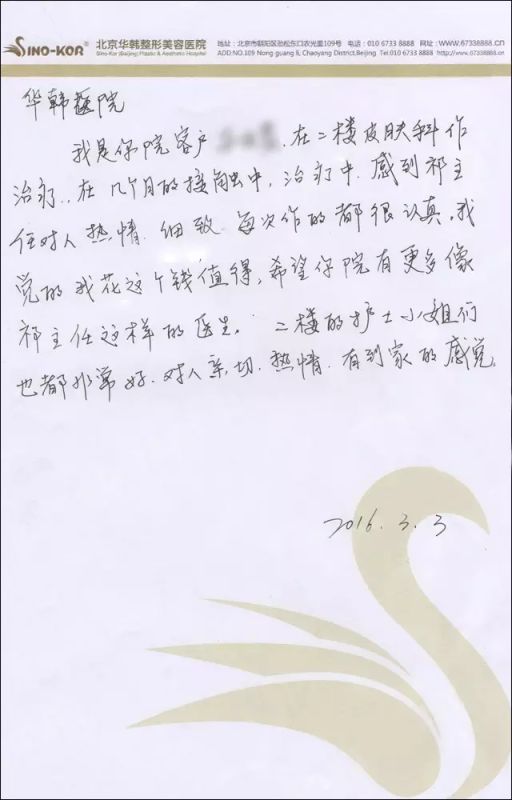 SINO-KOR® 北京华韩整形美容医院 地址：北京市朝阳区劲松东口农光里109号 电话：010 6733 8888 网址：www.67338888.com
Sino-Kor (Beijing) Plastic & Aesthetic Hospital ADD:NO.109 Nong guang li, Chaoyang District,Beijing Tel:010 6733 8888 http://www.67338888.com
华韩医院
我是你院客户 在二楼皮肤科作
治疗．在几个月的接触中，治疗中．感到祁主
任对人热情．细致．每次作的都很认真．我
觉的我花这个钱值得，希望你院有更多像
祁主任这样的医生。二楼的护士小姐们
也都非常好．对人亲切．热情．有到家的感觉．
2016.3.3